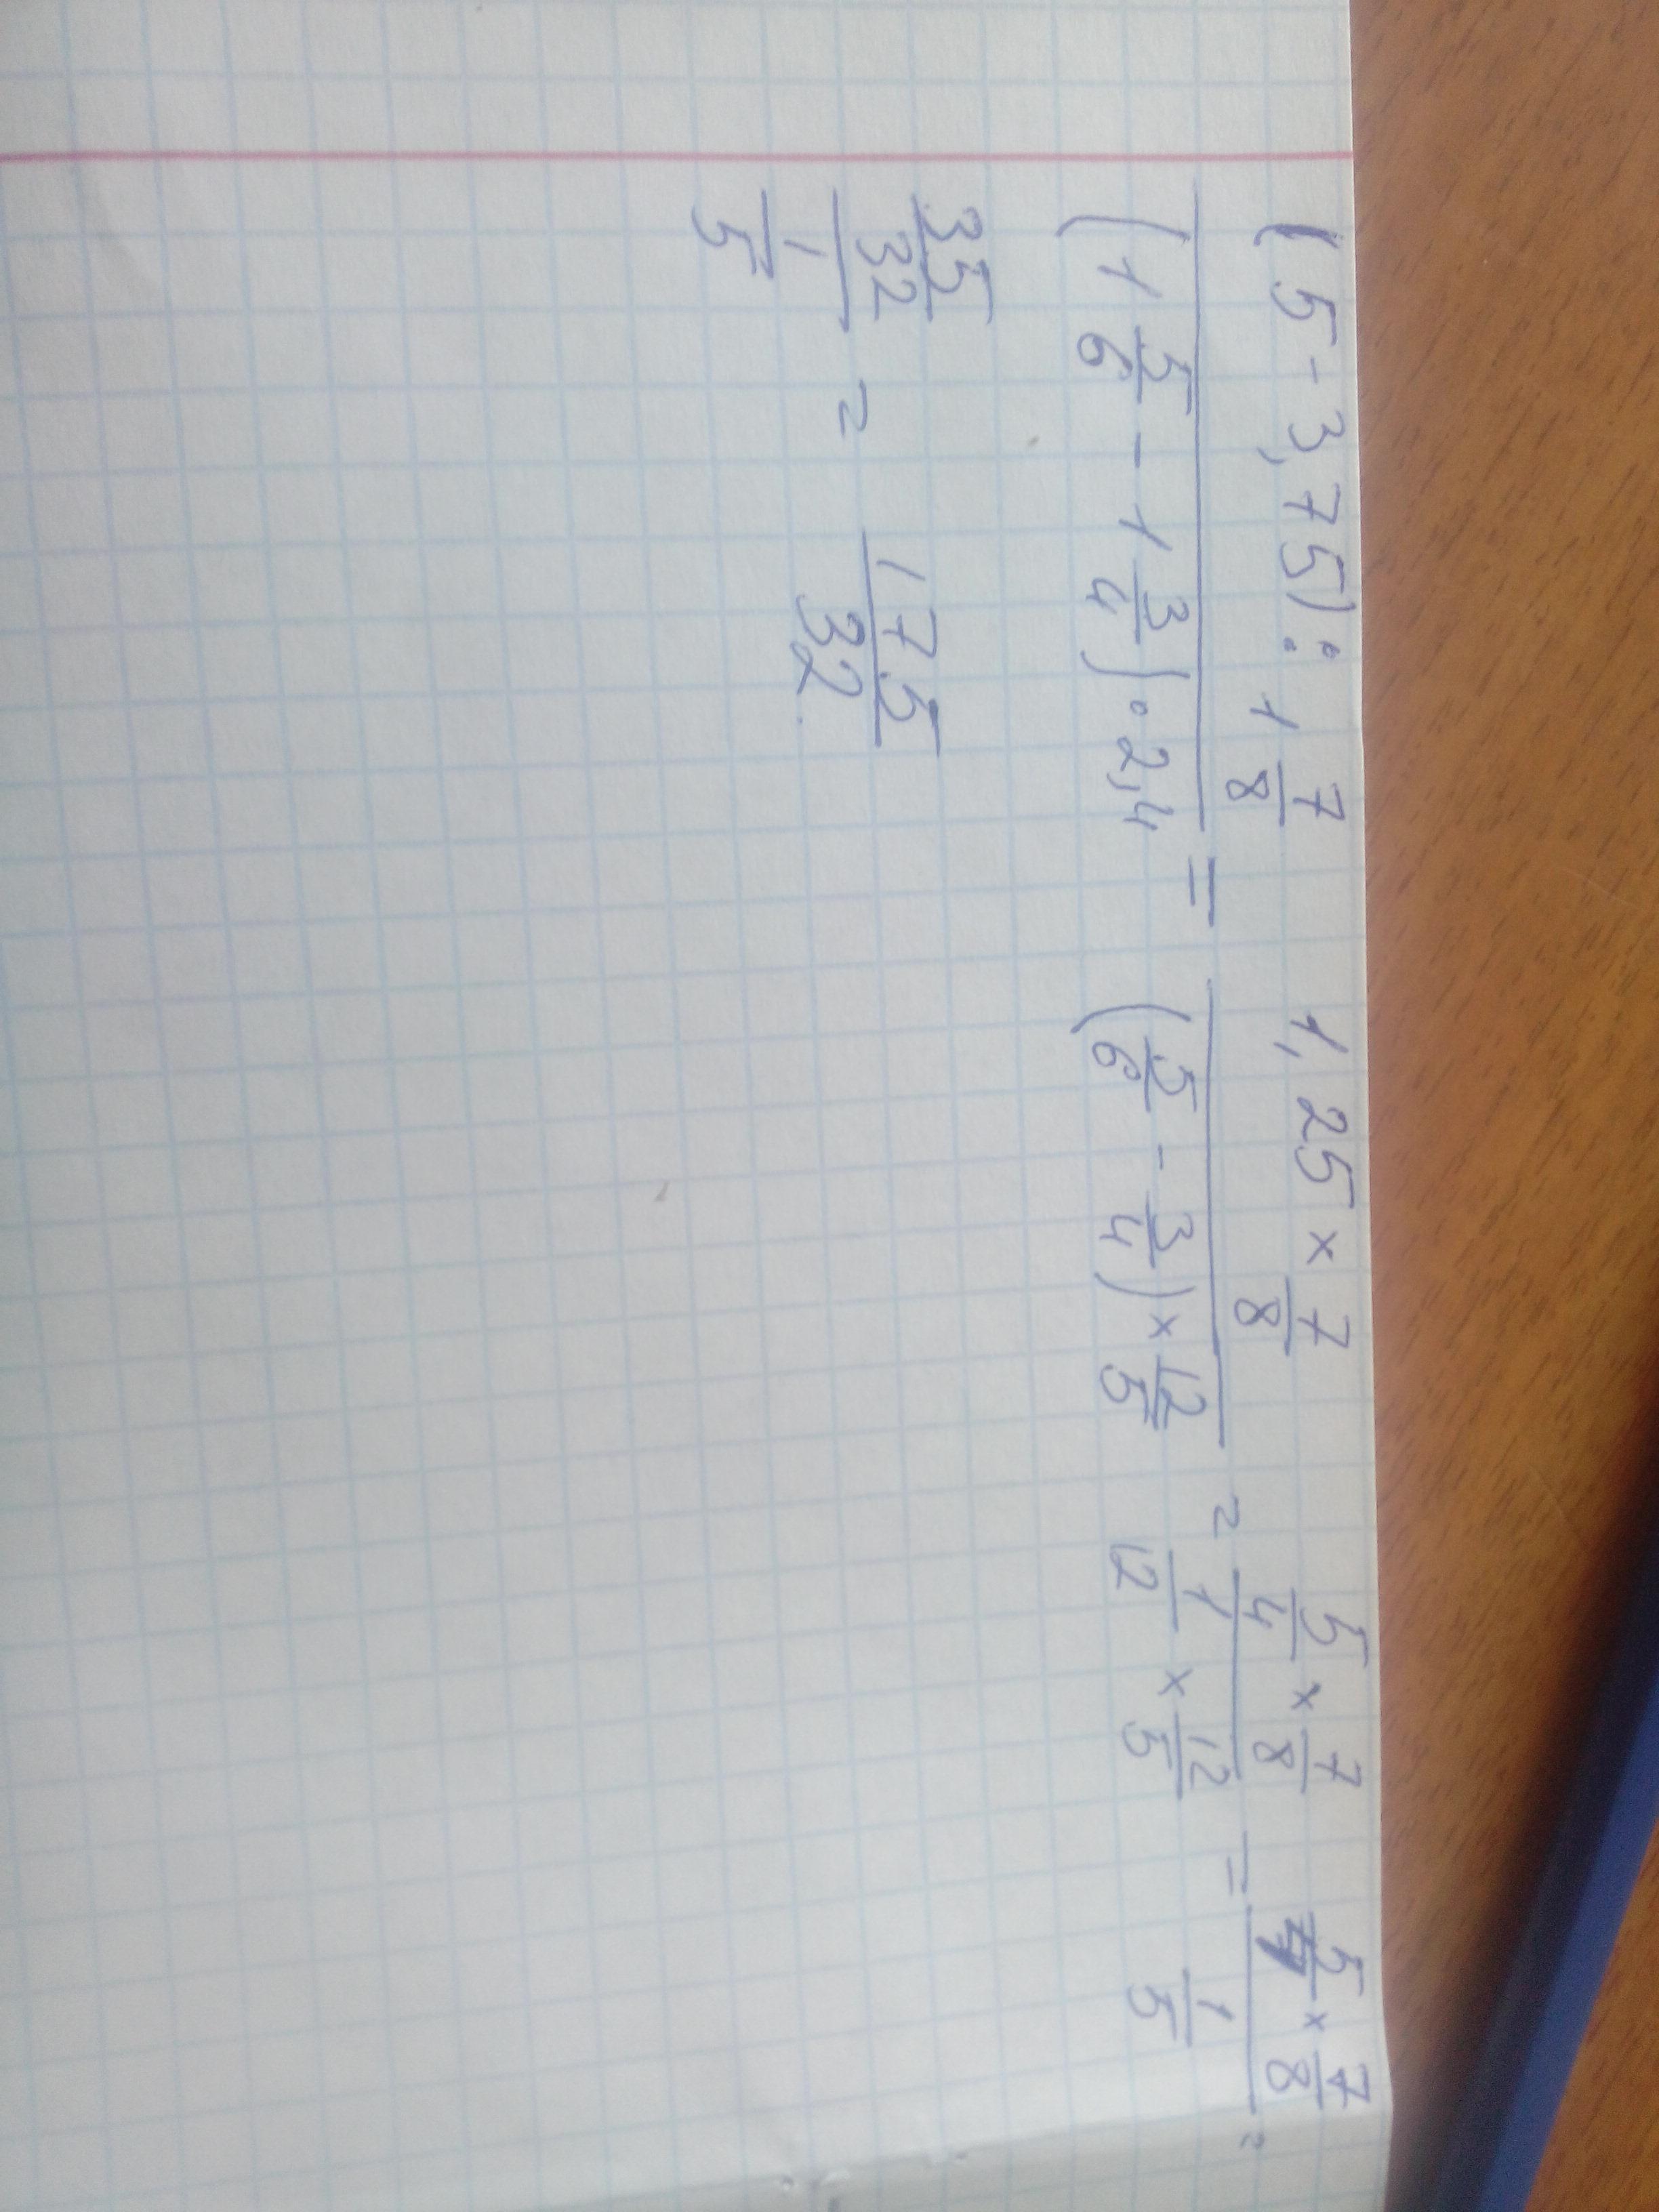 (5 - 3,75) : 1 7/8 / (1 5/6 - 1 3/4) · 2,4 = 1,25 × 7/8 / (5/6 - 3/4) × 12/5 = 5/4 × 7/8 / 1/12 × 12/5 = 5/4 × 7/8 / 1/5 =
35/32 / 1/5 = 175/32